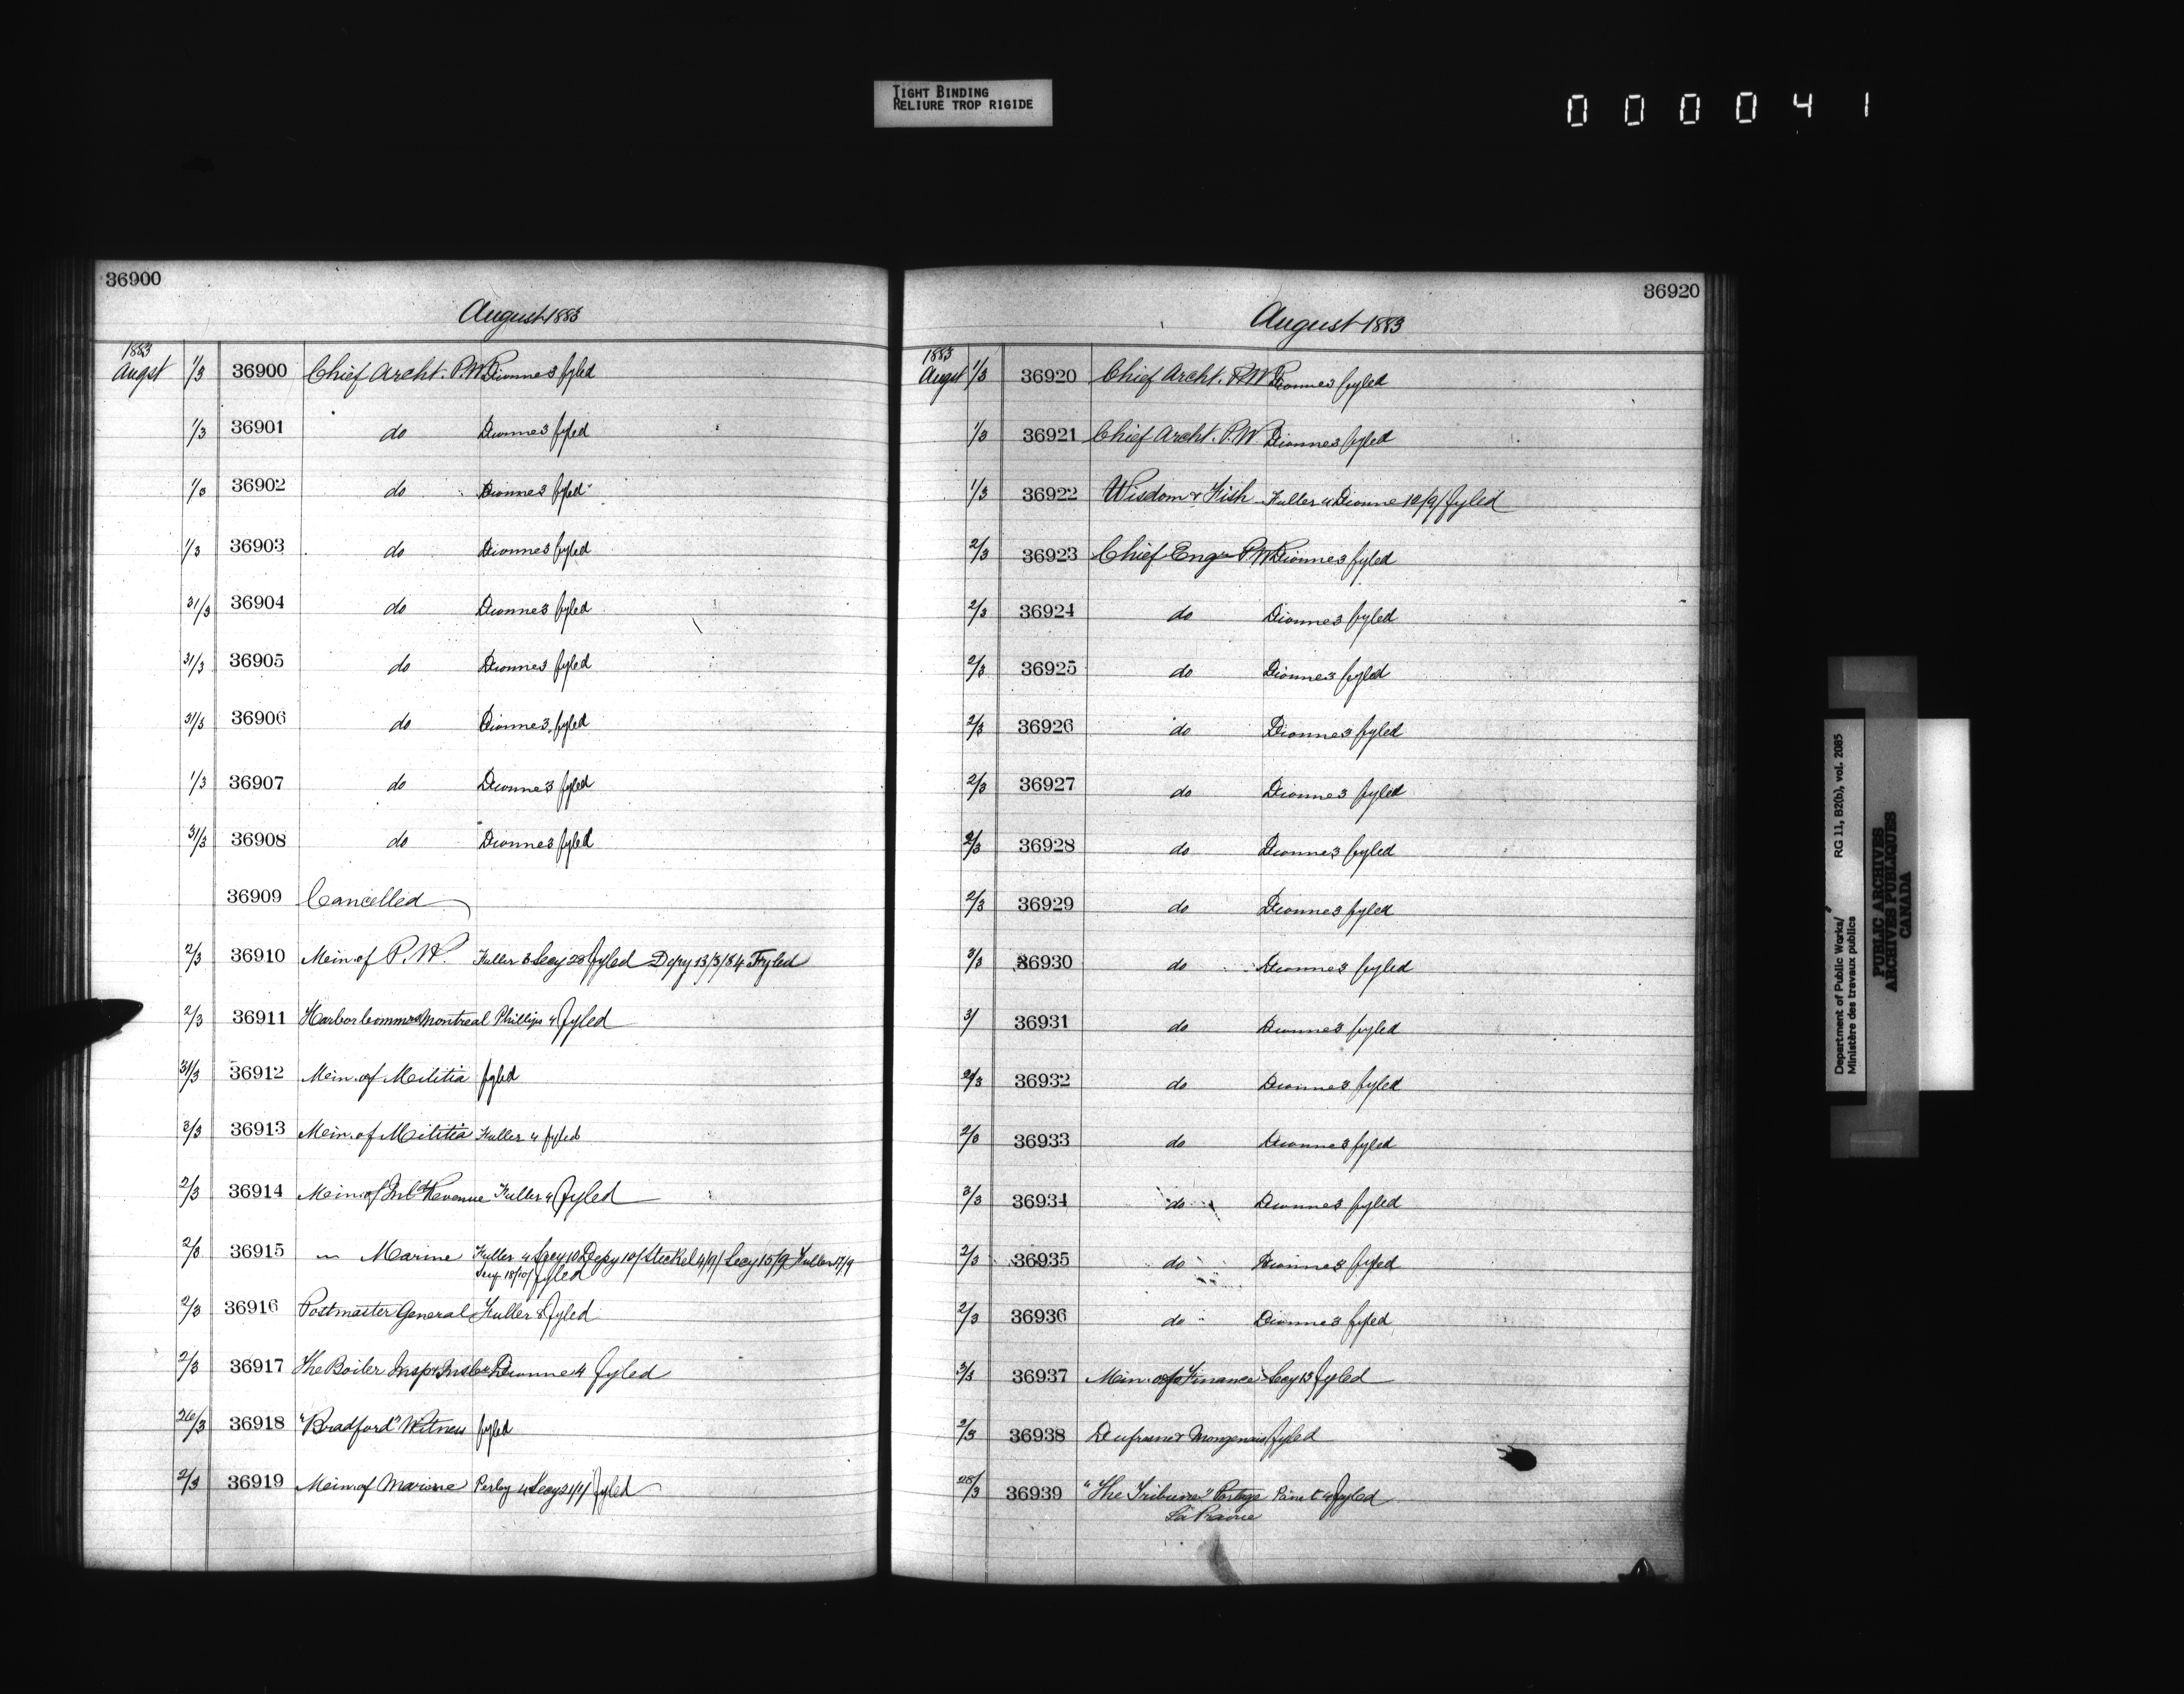 TIGHT BINDING
RELIURE TROP RIGIDE
000041
36900
August 1883
1883
Augst 1/3 36900 Chief Archt. P.W. Dionne 3 fyled
1/3 36901 do Dionne 3 fyled
1/3 36902 do Dionne 3 fyled
1/3 36903 do Dionne 3 fyled
31/3 36904 do Dionne 3 fyled
31/3 36905 do Dionne 3 fyled
31/3 36906 do Dionne 3 fyled
1/3 36907 do Dionne 3 fyled
31/3 36908 do Dionne 3 fyled
36909 Cancelled
2/3 36910 Min. of P.W. Fuller 3 Secy 28 fyled Depy 13/3/84 Fyled
2/3 36911 Harbor Commrs Montreal Phillips 4 fyled
31/3 36912 Min. of Militia fyled
2/3 36913 Min. of Militia Fuller 4 fyled
2/3 36914 Min. of Inld Revenue Fuller 4 fyled
2/3 36915 " Marine Fuller 4 Secy 10 Depy 10/ Steckel 4/9/ Secy 15/9 Fuller 17/9
Secy 18/10/ fyled
2/3 36916 Postmaster General Fuller 8 fyled
2/3 36917 The Boiler Insp & Ins Co Dionne 4 fyled
26/3 36918 "Bradford" Witness fyled
2/3 36919 Min. of Marine Perley 4 Secy 21/4/ fyled
36920
August 1883
1883
Augst 1/3 36920 Chief Archt. P.W. Dionne 3 fyled
1/3 36921 Chief Archt. P.W. Dionne 3 fyled
1/3 36922 Wisdom & Fish Fuller 4 Dionne 12/9/ fyled
2/3 36923 Chief Engr P.W. Dionne 3 fyled
2/3 36924 do Dionne 3 fyled
2/3 36925 do Dionne 3 fyled
2/3 36926 do Dionne 3 fyled
2/3 36927 do Dionne 3 fyled
2/3 36928 do Dionne 3 fyled
2/3 36929 do Dionne 3 fyled
3/3 36930 do Dionne 3 fyled
3/ 36931 do Dionne 3 fyled
2/3 36932 do Dionne 3 fyled
2/3 36933 do Dionne 3 fyled
3/3 36934 do Dionne 3 fyled
2/3 36935 do Dionne 3 fyled
2/3 36936 do Dionne 3 fyled
3/3 36937 Min. of Finance Secy 13 fyled
2/3 36938 Dufresne & Mongenais fyled
28/3 36939 "The Tribune" Portage fyled
La Prairie
Department of Public Works/ RG 11, B2(b), vol. 2085
Ministère des travaux publics
PUBLIC ARCHIVES
ARCHIVES PUBLIQUES
CANADA